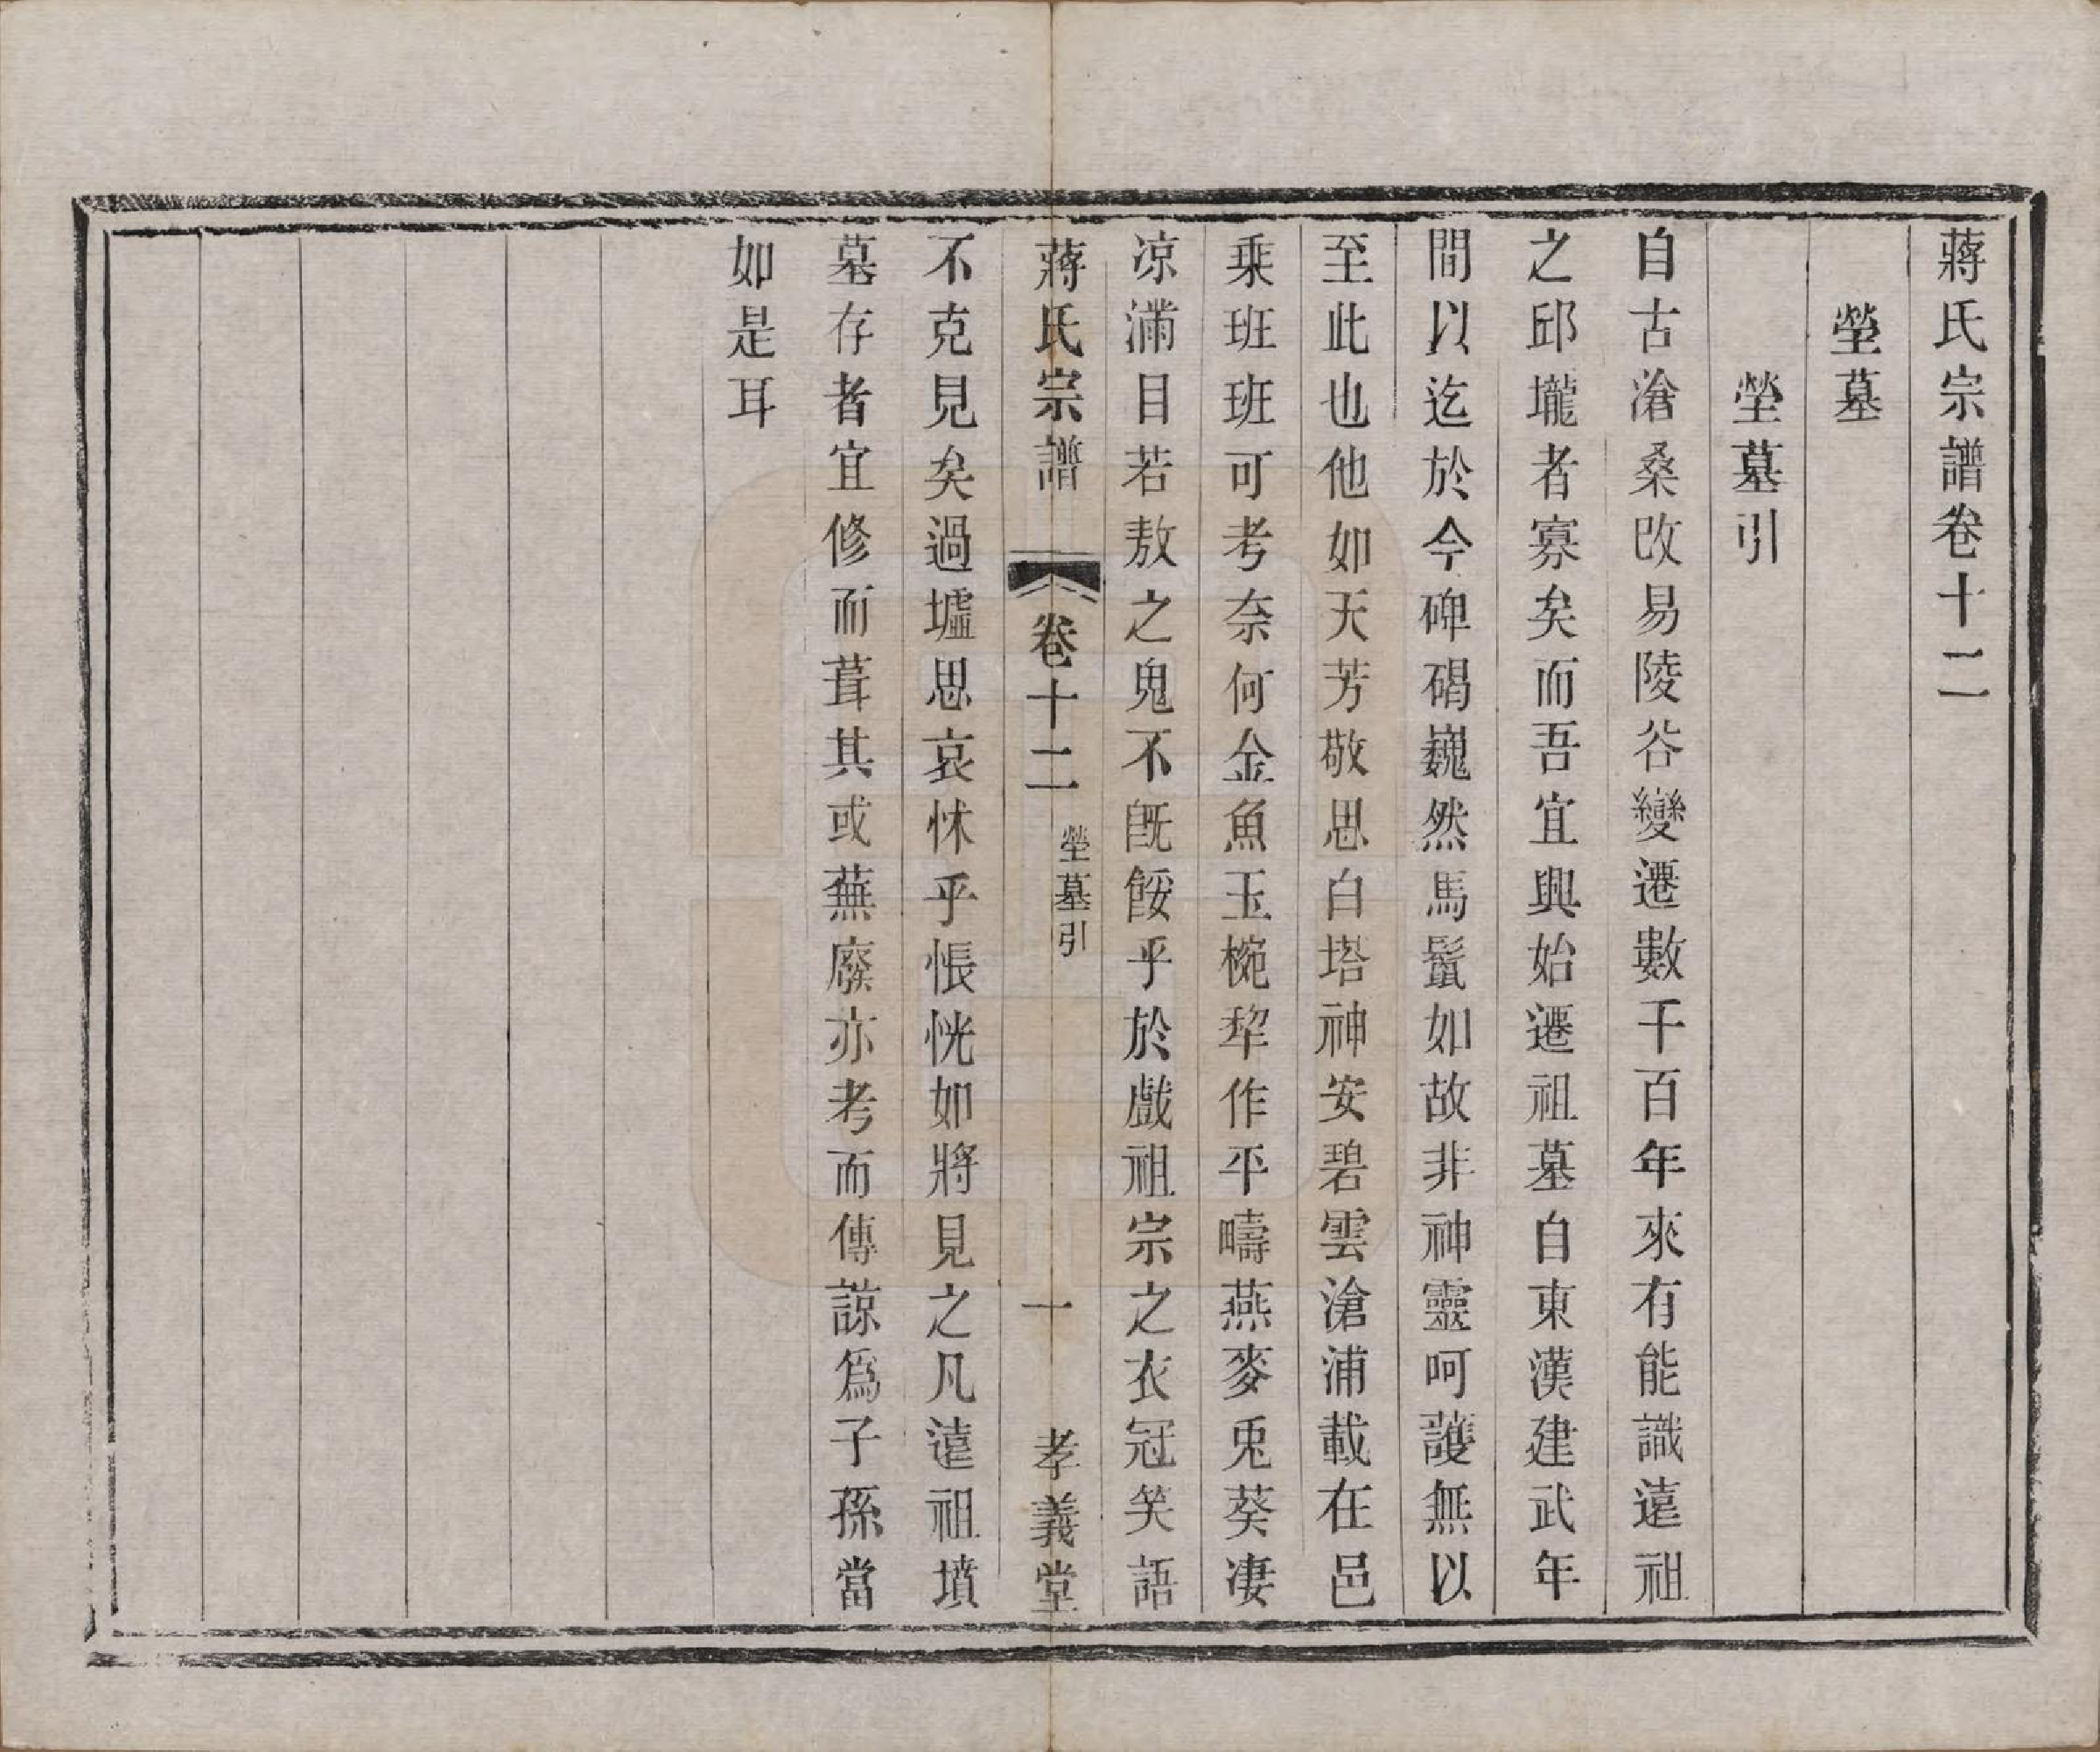 蔣氏宗譜卷十二
塋墓
塋墓引
自古滄桑改易陵谷變遷數千百年來有能識遠祖
之邱壠者寡矣而吾宜興始遷祖墓自東漢建武年
間以迄於今碑碣巍然馬鬣如故非神靈呵護無以
至此也他如天芳敬思白塔神安碧雲滄浦載在邑
乘班班可考奈何金魚玉椀犂作平疇燕麥兎葵凄
凉滿目若敖之鬼不旣餒乎於戲祖宗之衣冠笑語
蔣氏宗譜 卷十二 塋墓引 一 孝義堂
不克見矣過墟思哀怵乎悵恍如將見之凡遠祖墳
墓存者宜修而葺其或蕪廢亦考而傳諒爲子孫當
如是耳